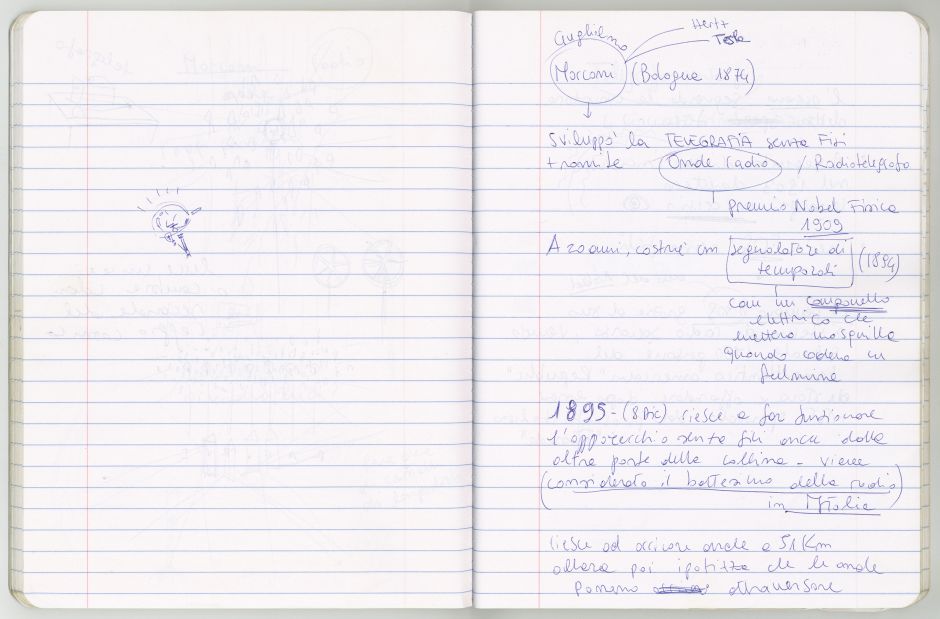 Guglielmo
Hertz
Tesla
Marconi (Bologna 1874)
Sviluppò la TELEGRAFIA senza Fili
tramite Onde radio / Radiotelegrafo
premio Nobel Fisica
1909
A 20 anni, costruì un segnalatore di
temporali (1894)
con un campanello
elettrico che
emetteva uno squillo
quando cadeva un
fulmine
1895 - (8 Dic) riesce a far funzionare
l'apparecchio senza fili anche dalla
altra parte della collina - viene
(considerato il battesimo della radio)
in Italia
riesce ad arrivare anche a 51 Km
allora poi ipotizza che le onde
possano attraversare